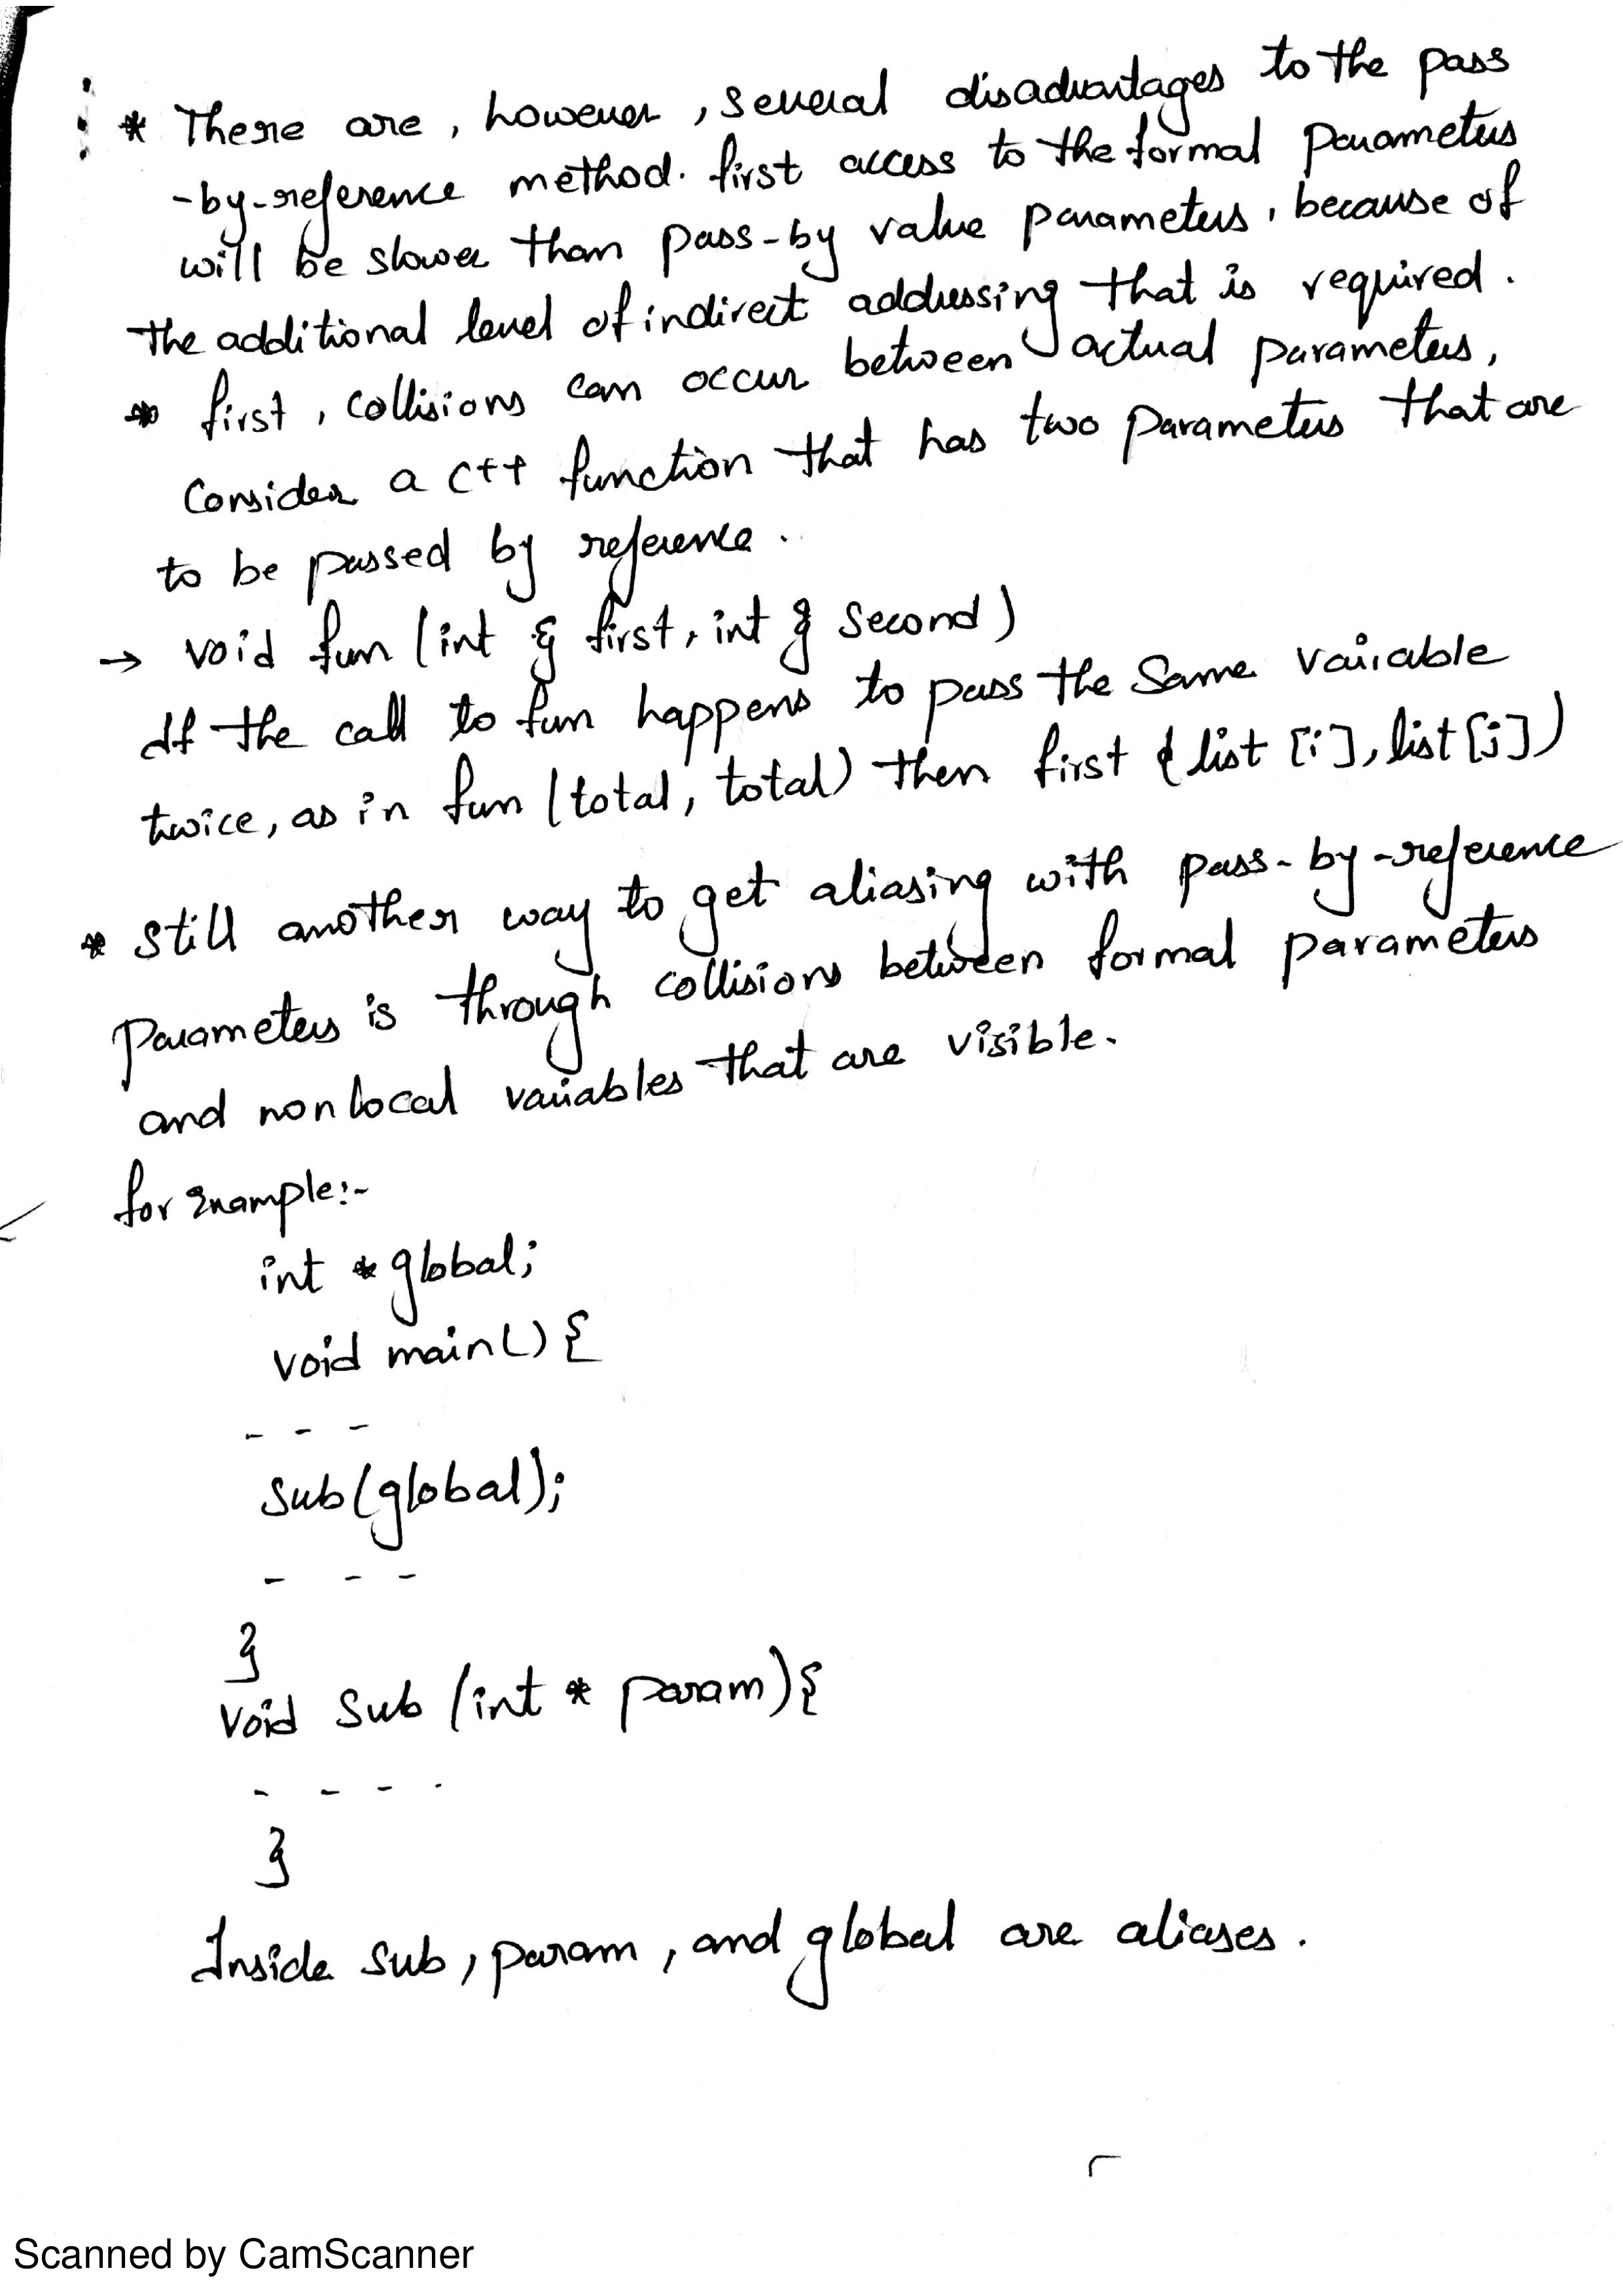 * There are, however, several disadvantages to the pass
-by-reference method. first access to the formal parameters
will be slower than pass-by value parameters, because of
the additional level of indirect addressing that is required.
* first, collisions can occur between actual parameters,
Consider a C++ function that has two parameters that are
to be passed by reference.
→ void fun (int & first, int & second)
If the call to fun happens to pass the same variable
twice, as in fun (total, total) then first & list [i], list [j])
* still another way to get aliasing with pass-by-reference
parameters is through collisions between formal parameters
and nonlocal variables that are visible.
for Example:-
int * global;
void main() {
- - -
sub(global);
- - -
}
void sub (int * param) {
- - - -
}
Inside sub, param, and global are aliases.
Scanned by CamScanner